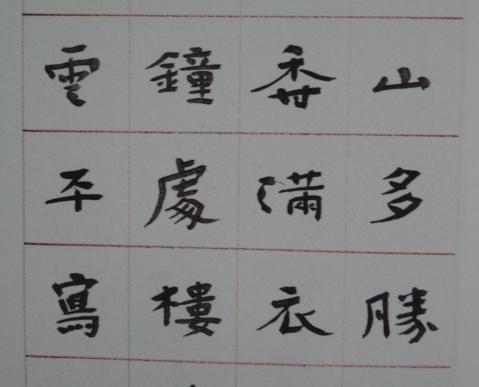 山多勝
香滿衣
鐘處樓
雲平寫